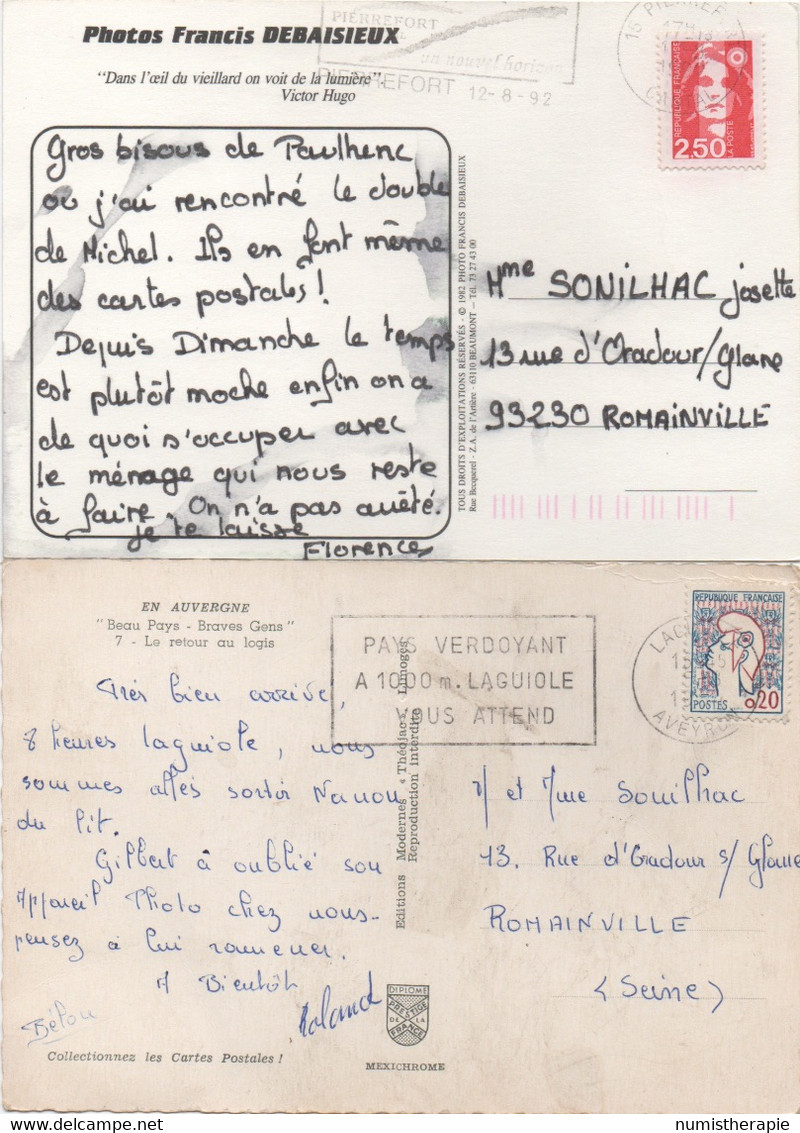 Photos Francis DEBAISIEUX
"Dans l'œil du vieillard on voit de la lumière".
Victor Hugo
PIERREFORT
un nouvel horizon
PIERREFORT 12-8-92
15 PIERREFORT
17H
CANTAL
REPUBLIQUE FRANÇAISE
LA POSTE
2,50
Gros bisous de Paulhenc
où j'ai rencontré le double
de Michel. Ils en font même
des cartes postales !
Depuis Dimanche le temps
est plutôt moche enfin on a
de quoi s'occuper avec
le ménage qui nous reste
à faire. On n'a pas arrêté.
je te laisse
Florence
TOUS DROITS D'EXPLOITATIONS RÉSERVÉS - © 1982 PHOTO FRANCIS DEBAISIEUX
Rue Becquerel - Z.A. de l'Artière - 63110 BEAUMONT - Tél. 73 27 43 00
Mme SONILHAC Josette
13 rue d'Oradour/Glane
93230 ROMAINVILLE
EN AUVERGNE
"Beau Pays - Braves Gens"
7 - Le retour au logis
PAYS VERDOYANT
A 1000 m. LAGUIOLE
VOUS ATTEND
AVEYRON
REPUBLIQUE FRANÇAISE
POSTES
0,20
Très bien arrivé,
8 heures laguiole, nous
sommes allés sortir Nanou
du lit.
Gilbert à oublié son
Appareil Photo chez nous..
pensez à lui ramener.
A Bientôt
Roland
Editions Modernes « Théojac » Limoges
Reproduction interdite
M et Mme Sonilhac
13. Rue d'Oradour s/ Glane
ROMAINVILLE
(Seine)
DIPLOME
PRESTIGE
DE LA
FRANCE
MEXICHROME
Collectionnez les Cartes Postales !
numistherapie